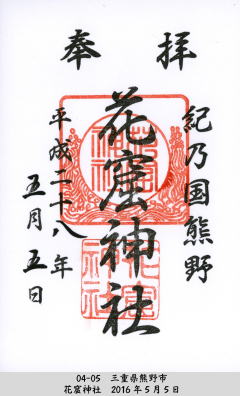 奉拝
紀乃国熊野
花窟神社
平成二十八年
五月五日
04-05 三重県熊野市
花窟神社 2016年5月5日